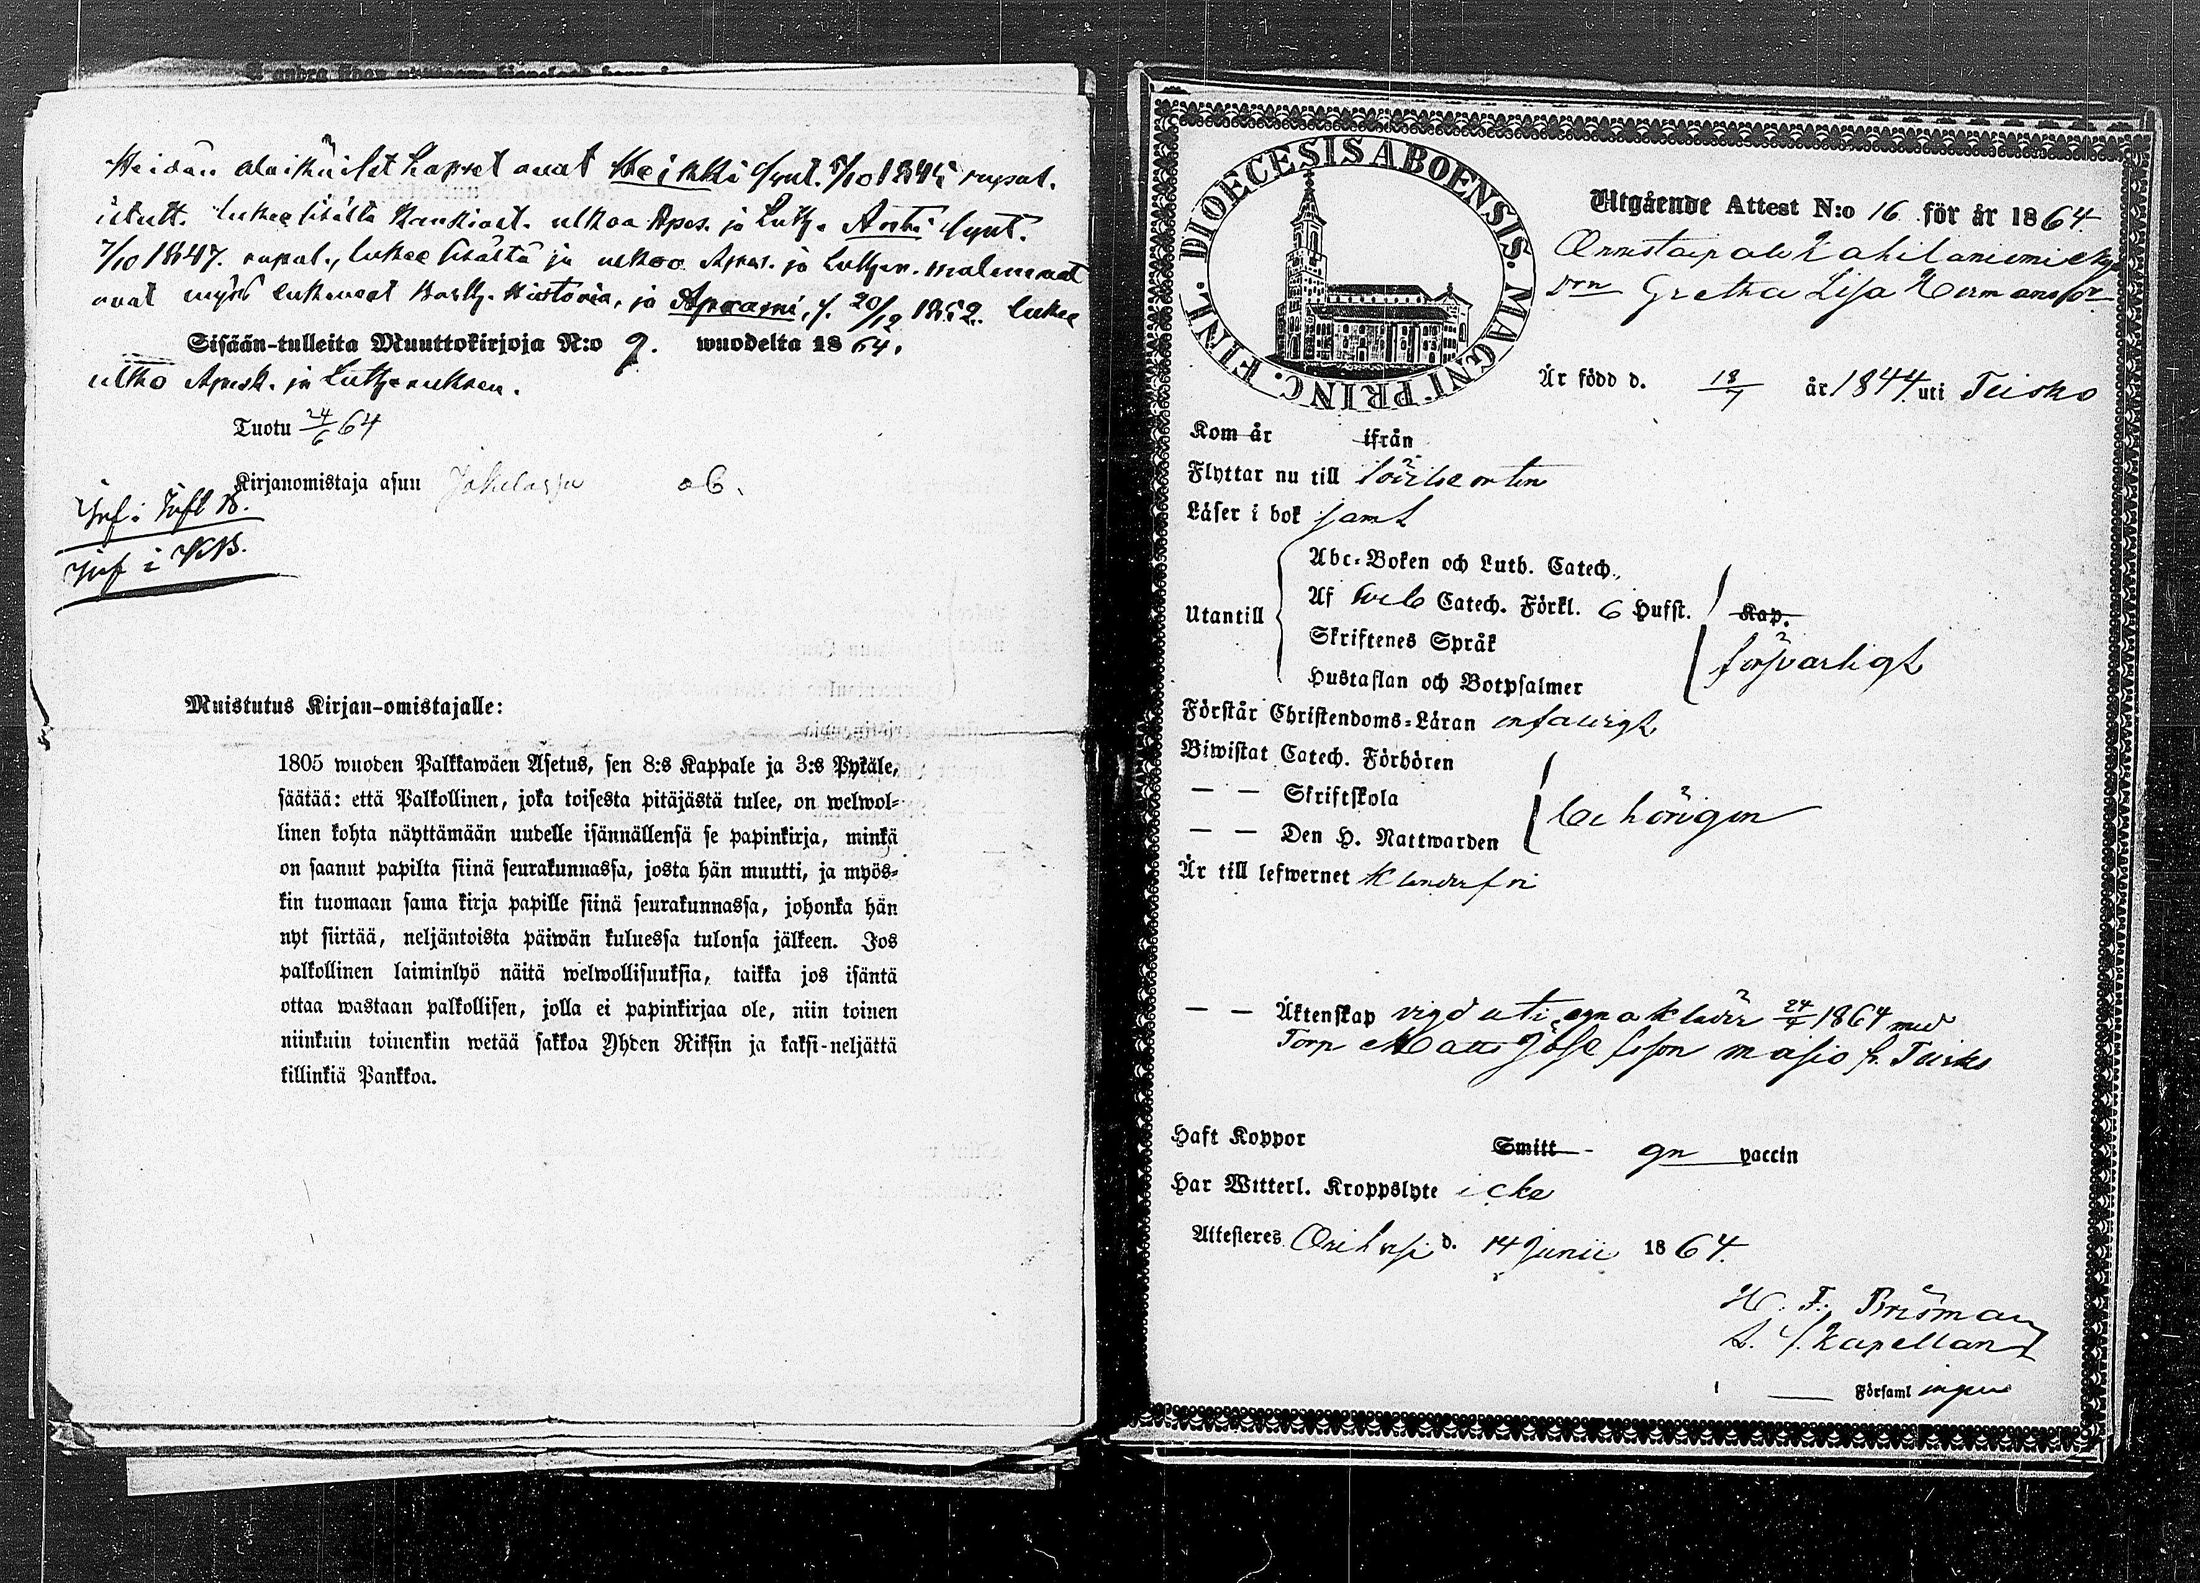 Heidän alaikäiset Lapset ovat Heikki synt. 7/10 1845 rupul.
istutt. lukee sisältä ulkoa Apes. ja Luth. Antti synt.
7/10 1847. rupul., lukee sisältä ja ulkoo Apes. ja Lutherr. molemmat
ovat myös lukeneet Historia, ja Apraami, s. 20/12 1852. lukee
Sisään-tulleita Muuttokirjoja N:o 9. wuodelta 18 64.
ulko Apesk. ja Lutheruksen.
Tuotu 24/6 64
Kirjanomistaja asuu
Inf i Infl B.
Inf i KB.
Muistutus Kirjan-omistajalle:
1805 wuoden Palkkawäen Asetus, sen 8:s Kappale ja 3:s Pykäle,
säätää: että Palkollinen, joka toisesta pitäjästä tulee, on welwol-
linen kohta näyttämään uudelle isännällensä se papinkirja, minkä
on saanut papilta siinä seurakunnassa, josta hän muutti, ja myös-
kin tuomaan sama kirja papille siinä seurakunnassa, johonka hän
nyt siirtää, neljäntoista päiwän kuluessa tulonsa jälkeen. Jos
palkollinen laiminlyö näitä welwollisuuksia, taikka jos isäntä
ottaa wastaan palkollisen, jolla ei papinkirjaa ole, niin toinen
niinkuin toinenkin wetää sakkoa Yhden Riksin ja kaksi-neljättä
killinkiä Pankkoa.
DIOECESIS ABOENSIS. MAGNI PRINC. FINL.
Utgående Attest N:o 16 för år 18 64.
Gretha Lisa Hermansdr
Är född d. 18/7 år 1844 uti Teisko
Kom år ifrån
Flyttar nu till
Läser i bok samt
Utantill
Abc-Boken och Luth. Catech.
Af Catech. Förkl. 6 Hufst. Kap.
Skriftenes Språk
försvarligt
Hustaflan och Botpsalmer
Förstår Christendoms-Läran enfaldigt
Biwistat Catech. Förhören
— — Skriftskola
behörigen
— — Den H. Nattwarden
Är till lefwernet klanderfri
— — Äktenskap vigd uti egna kläder 24/4 1864 med
Torp Matts Josefsson fr. Teisko
Haft Koppor Smitt - gn vaccin
Har Witterl. Kroppslyte icke
Attesteras Orihvesi d. 14 Junii 18 64.
H. F. Brisman
Kapellan
Församl